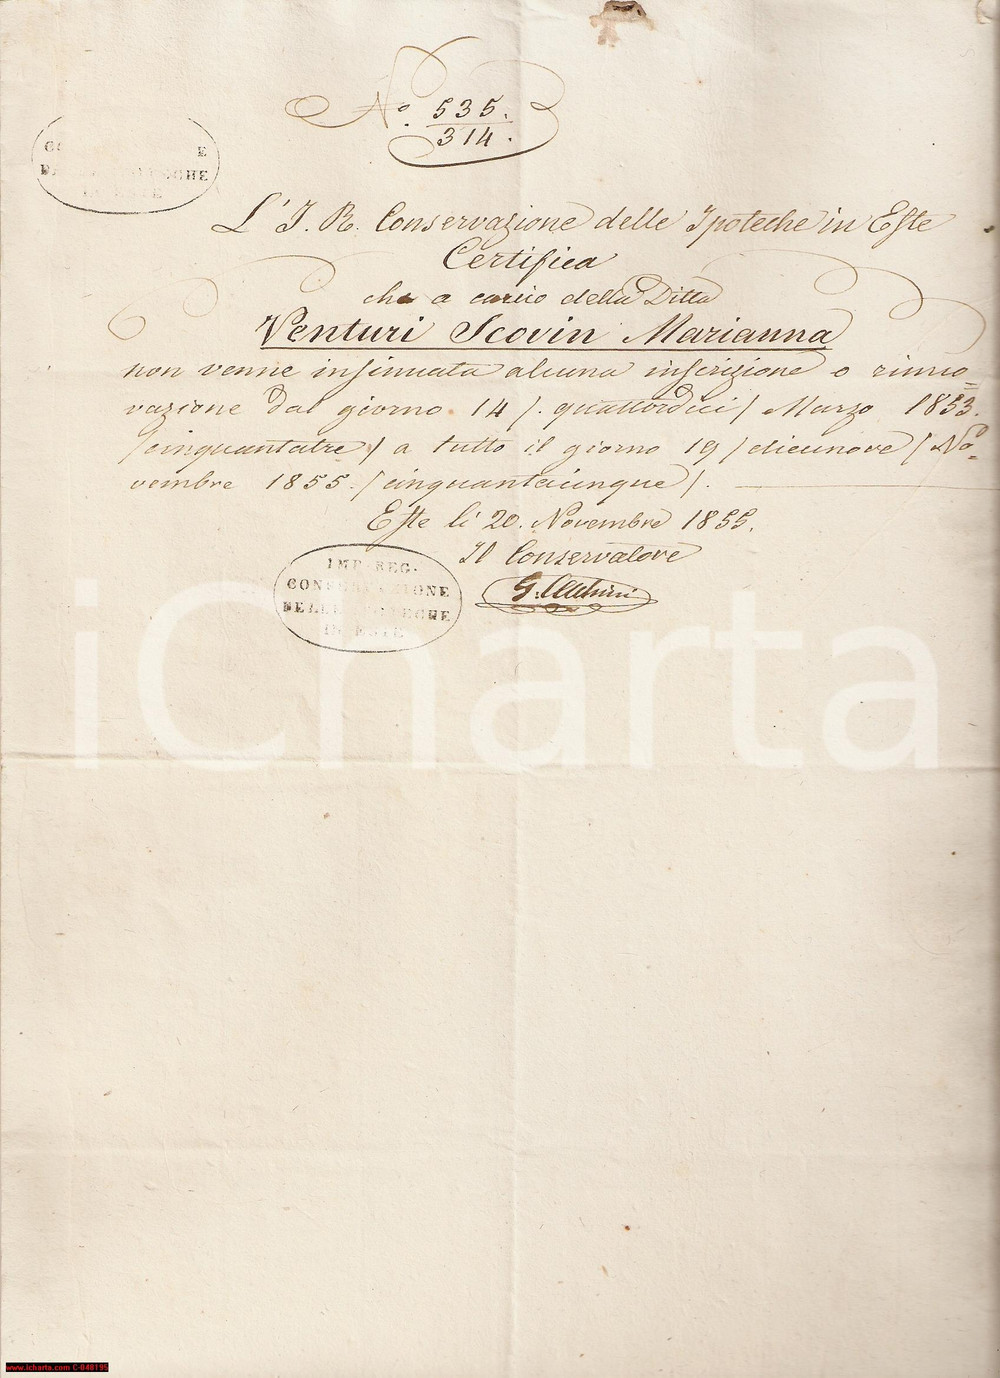 N.o 535.
314.
E
CHE
L' I. R. Conservazione delle Ipoteche in Este
Certifica
che a carico della Ditta
Venturi Scovin Marianna
non venne insinuata alcuna inscrizione o rinno=
vazione dal giorno 14 /. quattordici / Marzo 1853.
/cinquantatre/ a tutto il giorno 19 / diecinove / No=
vembre 1855. / cinquantacinque /.
Este li 20. Novembre 1855.
Il Conservatore
IMP. REG.
CONSERVAZIONE
DELLE IPOTECHE
IN ESTE
iCharta
www.icharta.com C-048195